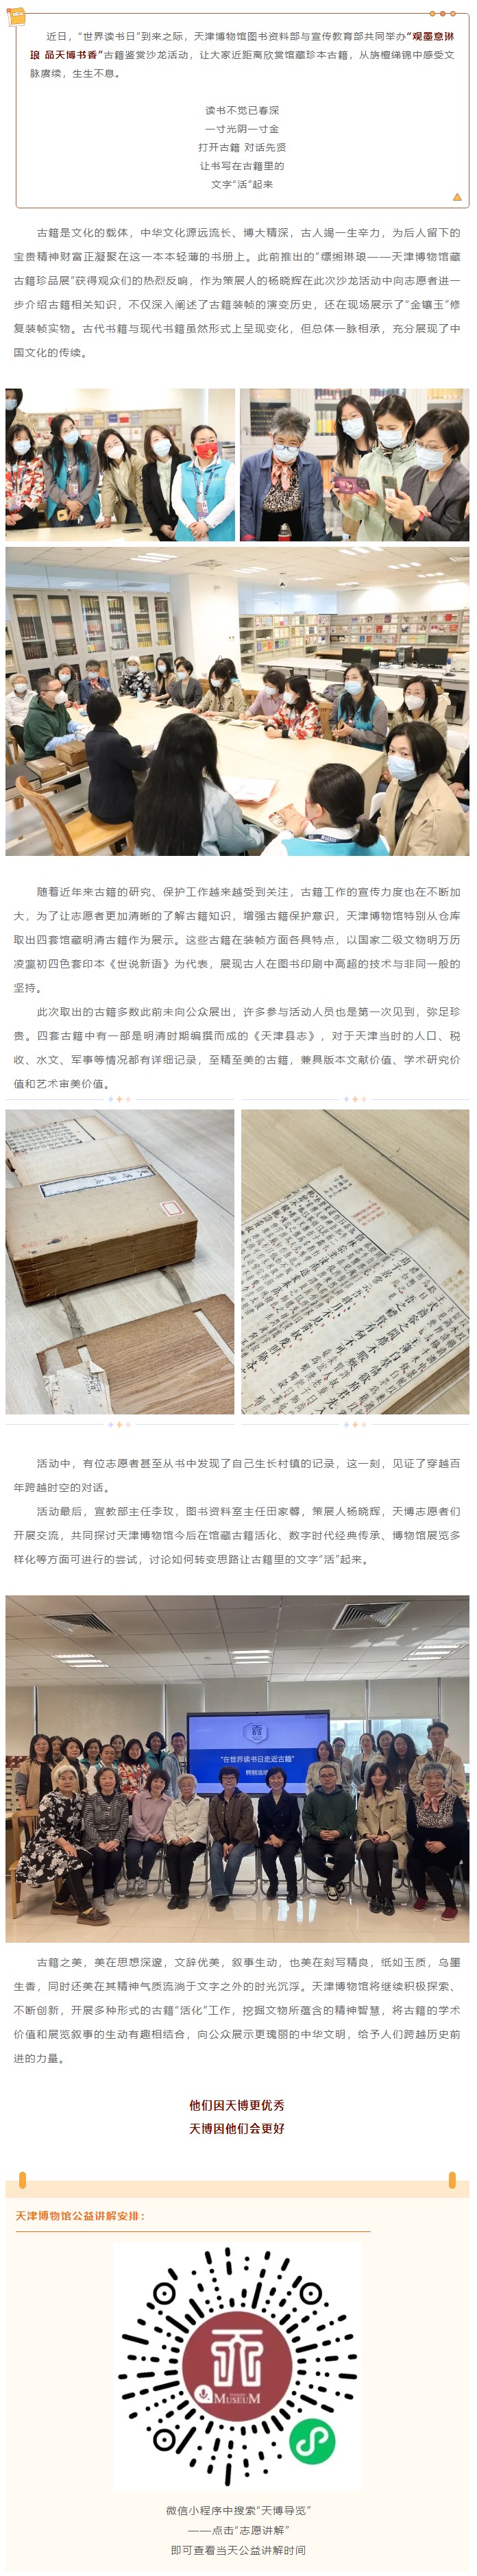 近日，“世界读书日”到来之际，天津博物馆图书资料部与宣传教育部共同举办“观墨意琳
琅 品天博书香”古籍鉴赏沙龙活动，让大家近距离欣赏馆藏珍本古籍，从旃檀绨锦中感受文
脉赓续，生生不息。
读书不觉已春深
一寸光阴一寸金
打开古籍 对话先贤
让书写在古籍里的
文字“活”起来
古籍是文化的载体，中华文化源远流长、博大精深，古人竭一生辛力，为后人留下的
宝贵精神财富正凝聚在这一本本轻薄的书册上。此前推出的“缥缃琳琅——天津博物馆藏
古籍珍品展”获得观众们的热烈反响，作为策展人的杨晓辉在此次沙龙活动中向志愿者进一
步介绍古籍相关知识，不仅深入阐述了古籍装帧的演变历史，还在现场展示了“金镶玉”修
复装帧实物。古代书籍与现代书籍虽然形式上呈现变化，但总体一脉相承，充分展现了中
国文化的传续。
随着近年来古籍的研究、保护工作越来越受到关注，古籍工作的宣传力度也在不断加
大，为了让志愿者更加清晰的了解古籍知识，增强古籍保护意识，天津博物馆特别从仓库
取出四套馆藏明清古籍作为展示。这些古籍在装帧方面各具特点，以国家二级文物明万历
凌瀛初四色套印本《世说新语》为代表，展现古人在图书印刷中高超的技术与非同一般的
坚持。
此次取出的古籍多数此前未向公众展出，许多参与活动人员也是第一次见到，弥足珍
贵。四套古籍中有一部是明清时期编撰而成的《天津县志》，对于天津当时的人口、税
收、水文、军事等情况都有详细记录，至精至美的古籍，兼具版本文献价值、学术研究价
值和艺术审美价值。
活动中，有位志愿者甚至从书中发现了自己生长村镇的记录，这一刻，见证了穿越百
年跨越时空的对话。
活动最后，宣教部主任李玫，图书资料室主任田家馨，策展人杨晓辉，天博志愿者们
开展交流，共同探讨天津博物馆今后在馆藏古籍活化、数字时代经典传承、博物馆展览多
样化等方面可进行的尝试，讨论如何转变思路让古籍里的文字“活”起来。
“在世界读书日走近古籍”
特别活动
古籍之美，美在思想深邃，文辞优美，叙事生动，也美在刻写精良，纸如玉质，乌墨
生香，同时还美在其精神气质流淌于文字之外的时光沉浮。天津博物馆将继续积极探索、
不断创新，开展多种形式的古籍“活化”工作，挖掘文物所蕴含的精神智慧，将古籍的学术
价值和展览叙事的生动有趣相结合，向公众展示更瑰丽的中华文明，给予人们跨越历史前
进的力量。
他们因天博更优秀
天博因他们会更好
天津博物馆公益讲解安排：
MUSEUM
微信小程序中搜索“天博导览”
——点击“志愿讲解”
即可查看当天公益讲解时间